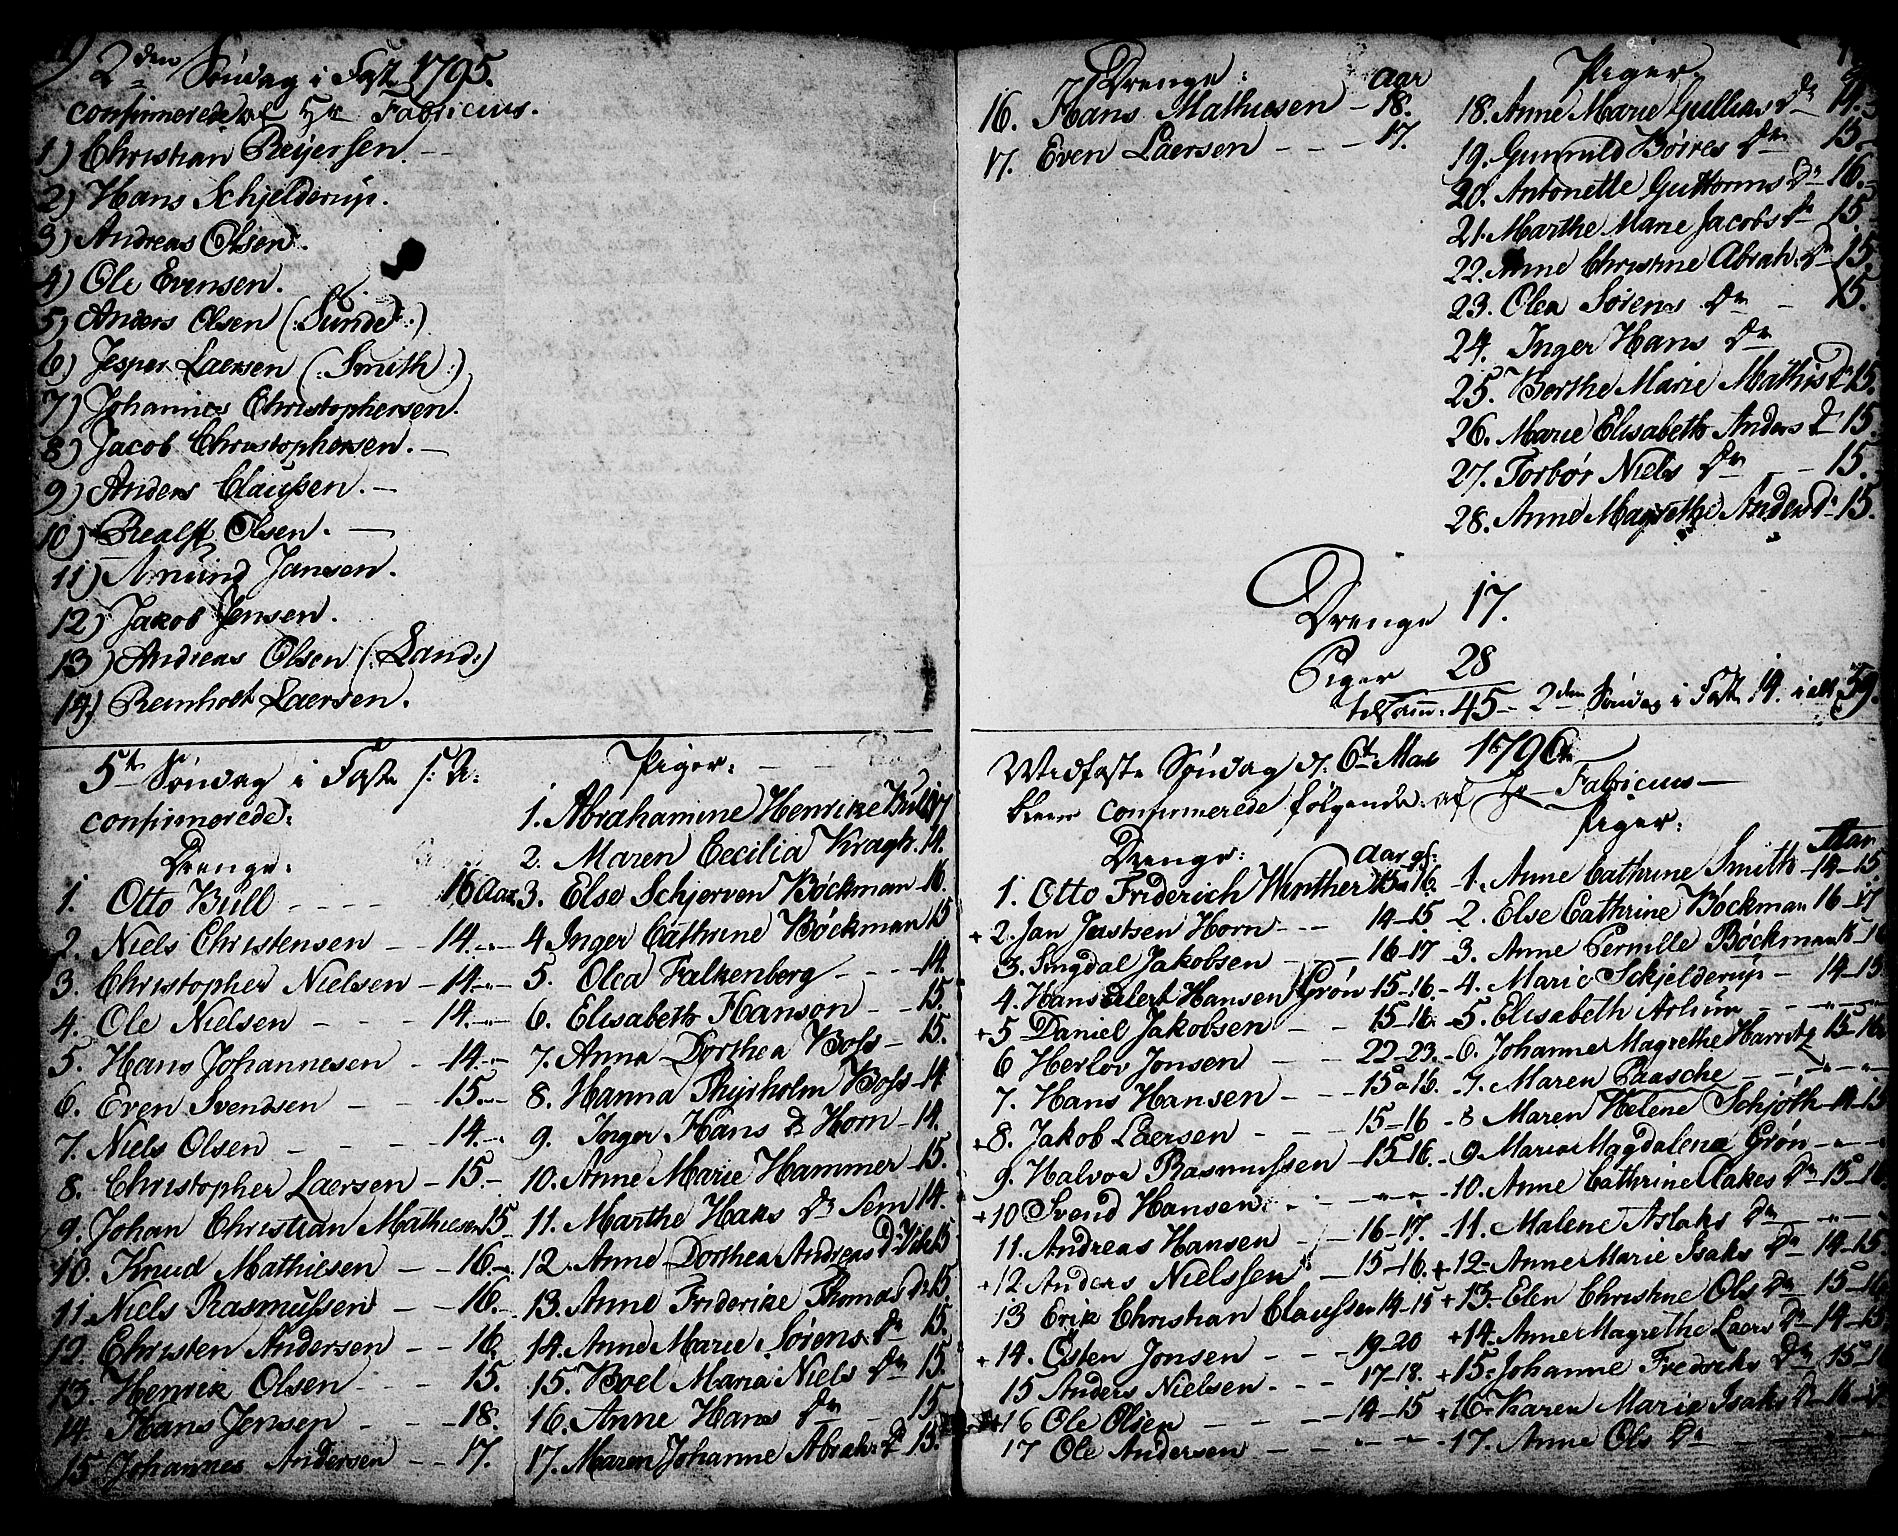 2den Søndag i Fast 1795.
confirmerede af Hr Fabricius.
1) Christian Reijersen. —
2) Hans Schjelderup.
3) Andreas Olsen.
4) Ole Evensen.
5) Anders Olsen (: Sunde :)
6) Jesper Laersen (: Smith :)
7) Johannes Christophersen.
8) Jacob Christophersen. —
9) Anders Claussen. —
10) Realff Olsen. —
11) Amund Jansen.
12) Jakob Jensen.
13) Andreas Olsen (: Land :)
14) Reinholt Laersen.
5te Søndag i Faste s: A:
confirmerede:
Drenge:
1. Otto Bull - - - - 16 Aar
2. Niels Christensen — 14.
3. Christopher Nielsen — 14.
4. Ole Nielsen - - - 14.
5. Hans Johannesen - 14.
6. Even Svendsen — — 15.
7. Niels Olsen - - - 14.
8. Christopher Laersen — 15.
9. Johan Christian Mathiesen 15
10. Knud Mathiesen — — 16.
11. Niels Rasmussen — — 16.
12. Christen Andersen — — 16.
13. Henrik Olsen - - - 15.
14. Hans Jensen - - - 18.
15 Johannes Andersen — — 17.
Piger:
1. Abrahamine Henrike Bull 17
2. Maren Cecilia Kragh. 14.
3. Else Schjerven Böckman 16.
4. Inger Cathrine Böckman 15
5. Olea Falkenberg - - - 14.
6. Elisabeth Hanson - - 15.
7. Anna Dorthea Boss — 15.
8. Hanna Thyrholm Boss - 14
9. Inger Hans D Horn - 14.
10. Anne Marie Hammer 15.
11. Marthe Hans Dr Sem 14.
12. Anne Dorthea Andreas Dr Vik 15
13. Anne Friderike Thomas Dr 15.
14. Anne Marie Sørens Dr 15.
15. Boel Maria Niels Dr 15.
16. Anne Hans Dr 15
17. Maren Johanne Abrah: D 15.
Drenge: Aar
16. Hans Mathiesen — 18.
17. Even Laersen - - - 17.
Piger.
18. Anne Marie Gullias Dr 14.
19. Gunnild Børres Dr 15.
20. Antonette Guttorms Dr 16.
21. Marthe Marie Jacobs Dr 15.
22. Anne Christine Abrah: Dr 15
23. Olea Sørens Dr - 15.
24. Inger Hans Dr
25. Berthe Marie Mathis Dr 15.
26. Marie Elisabeth Anders D 15
27. Torbør Niels Dr - 15.
28. Anne Magrethe Anders Dr 15.
Drenge 17.
Piger 28
tilsam: 45 — 2den Søndag i Fast 14. i alt 59.
Midfaste Søndag d: 6te Mart 1796
bleve confirmerede følgende af Hr Fabricius —
Drenge: Aar gl:
1. Otto Friderich Winther 15-16.
+ 2. Jan Justsen Horn - - - 14-15
3. Singdal Jakobsen - - - 16-17
4. Hans Eilert Hansen Grøn 15-16.
+ 5 Daniel Jakobsen - - 15-16.
6 Herlov Jonsen - - 22-23.
7. Hans Hansen - - - 15 a 16.
+ 8. Jakob Laersen - - - 15-16
9. Halvor Rasmussen - 15-16.
+ 10 Svend Hansen - - - - -
11. Andreas Hansen - - 16-17.
+ 12 Anders Nielssen — 15-16.
13 Erik Christian Claussen 14-15
+ 14. Østen Jonsen - - - 19-20
15 Anders Nielsen. - - - 17-18.
+ 16 Ole Olsen - - — 14-15
17 Ole Andersen - - - - -
Piger:
Aar
1. Anne Cathrine Smith - 14-15.
2. Else Cathrine Böckman 16-17
3. Anne Pernille Böckman 15-16
4. Marie Schjelderup — 14-15
5. Elisabeth Arlium - - - - -
6. Johanne Magrethe Harritz 15-16
7. Maren Paasche - - - - -
8 Maren Helene Schjøth 14-15
9. Maria Magdalena Grøn - - - -
10. Anne Cathrine Aakes Dr 15-16
11. Malene Aslaks Dr - - - -
+ 12. Anne Marie Isaks Dr 14-15.
+ 13. Elen Christine Ols Dr 15-16
+ 14. Anne Magrethe Laers Dr 14-15
+ 15. Johanne Fredriks Dr 15-16
+ 16. Karen Marie Isaks Dr 16-17.
17. Anne Ols Dr - - - - -